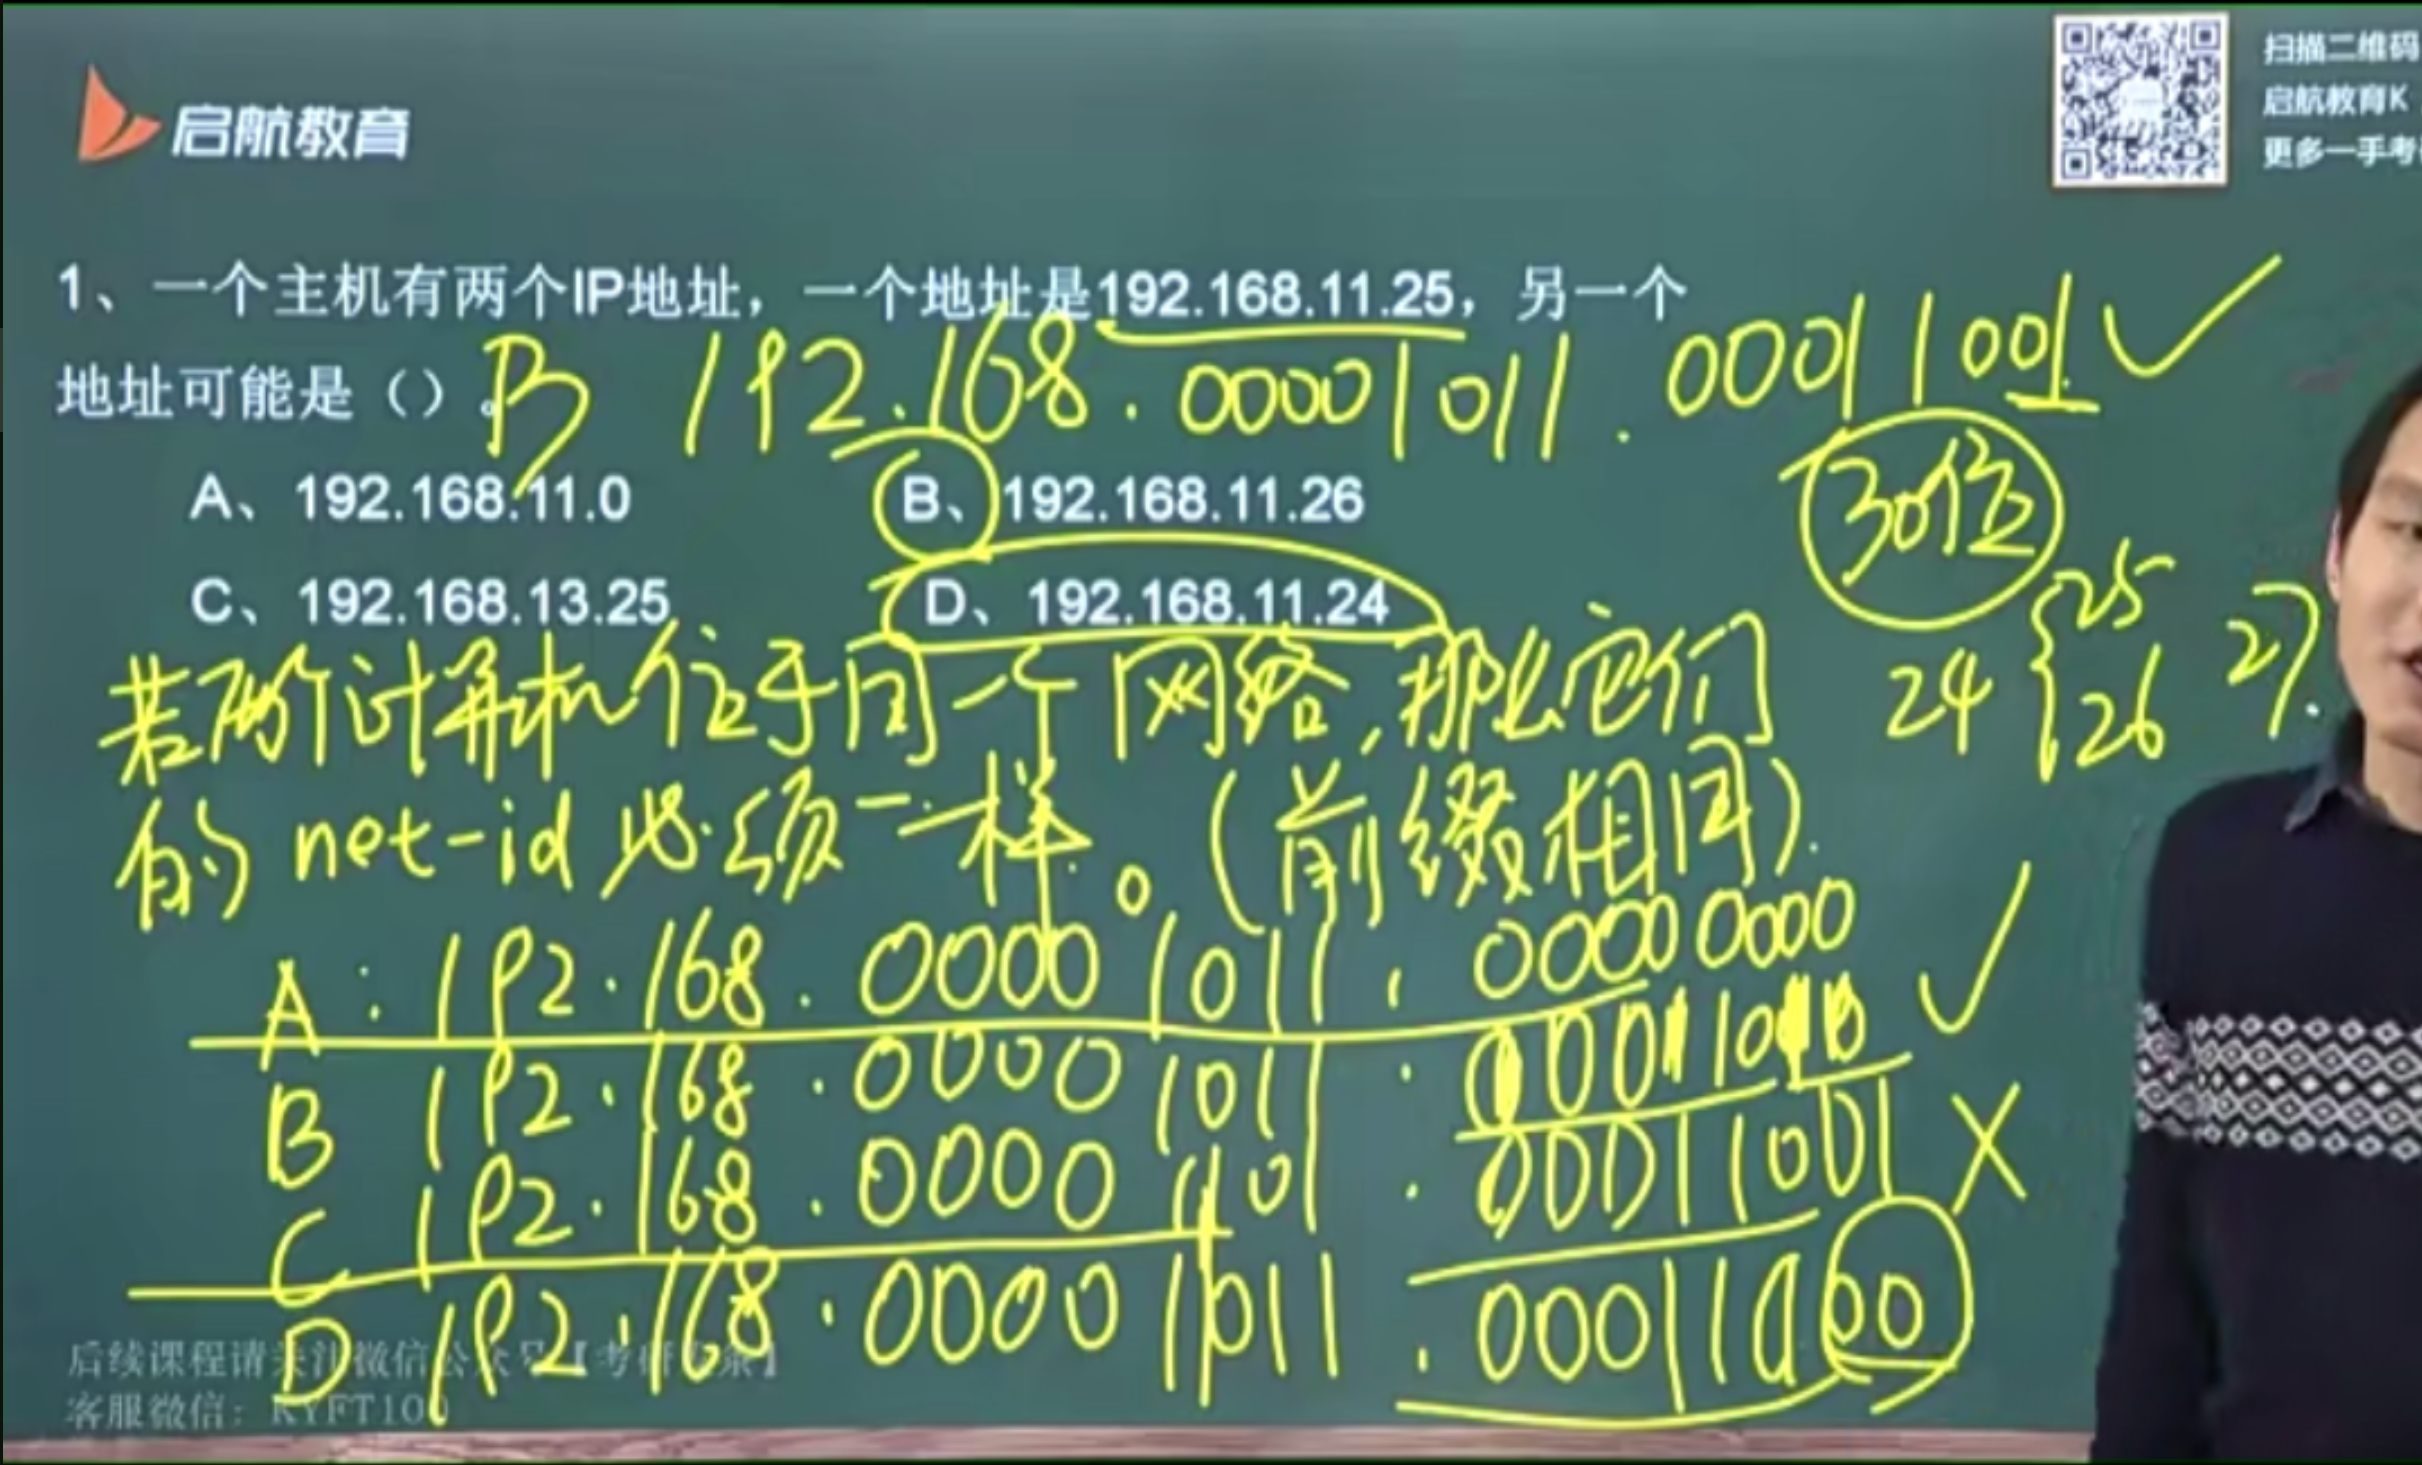 启航教育
扫描二维码
启航教育K
更多一手考
1、一个主机有两个IP地址，一个地址是192.168.11.25，另一个
地址可能是（）。B
192.168.00001011.00011001
A、192.168.11.0
B、192.168.11.26
30位
C、192.168.13.25
D、192.168.11.24
24 25 26 27.
若两个计算机位于同一个网络,那么它们
的 net-id 必须一样。(前缀相同).
A: 192.168.00001011.00000000
B 192.168.00001011.00011010
C 192.168.00001101.00011001
D 192.168.00001011.00011000
后续课程请关注微信公众号【考研
客服微信：KYFT100